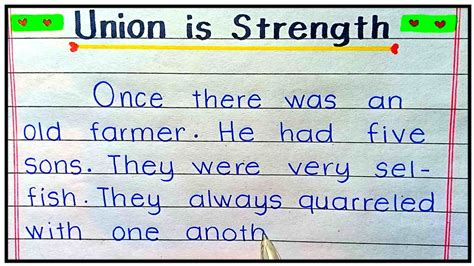 Union is Strength
Once there was an
old farmer. He had five
sons. They were very sel-
fish. They always quarreled
with one anoth